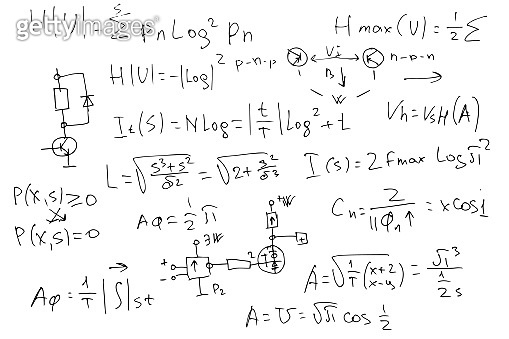 gettyimages
H|U| = Σ Pn Log² Pn
H max (U) = 1/2 Σ
H|U| = -|Log|²
p-n-p
Vi
n-p-n
B
1 W 1
It(S) = N Log = |t/T| Log² + L
Vh = VsH(A)
L = √(S³+S²/δ²) = √(2+S²/δ³)
I(s) = 2 Fmax Log √π²
P(x,s) ≥ 0
P(x,s) = 0
Aφ = 1/2 π
+W
Cn = 2/||φ1↑ = x cos i
ЗW
+
-
P2
2
T
+
A = √(1/T (x+2/x-4s)) = √π³/(1/2 s)
Aφ = 1/T |∫| st
A = U = √π cos 1/2